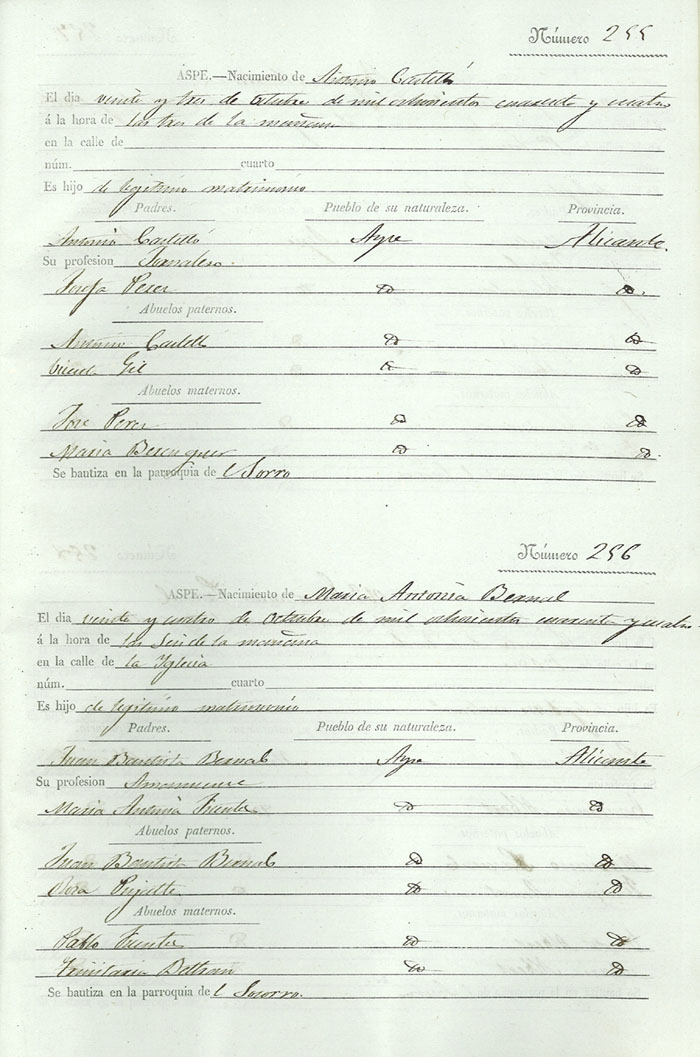 Número 255
ASPE.—Nacimiento de Antonio Castelló
El dia veinte y tres de Octubre de mil ochocientos cuarenta y cuatro
á la hora de las tres de la mañana
en la calle de
núm. cuarto
Es hijo de legitimo matrimonio
Padres. Pueblo de su naturaleza. Provincia.
Antonio Castelló Aspe Alicante.
Su profesion Jornalero.
Josefa Perez Id Id.
Abuelos paternos.
Antonio Castelló Id Id
Gil Id Id
Abuelos maternos.
Jose Perez Id Id
Maria Berenguer Id Id.
Se bautiza en la parroquia de l Socorro
Número 256
ASPE.—Nacimiento de Maria Antonia Bernal
El dia veinte y cuatro de Octubre de mil ochocientos cuarenta y cuatro
á la hora de las Seis de la mañana
en la calle de la Iglesia
núm. cuarto
Es hijo de legitimo matrimonio
Padres. Pueblo de su naturaleza. Provincia.
Juan Bautista Bernal Aspe Alicante
Su profesion Amanuense
Maria Antonia Fuentes Id Id
Abuelos paternos.
Juan Bautista Bernal Id Id
Id Id
Abuelos maternos.
Pablo Fuentes Id Id
Trinitaria Beltran Id Id
Se bautiza en la parroquia de l Socorro.